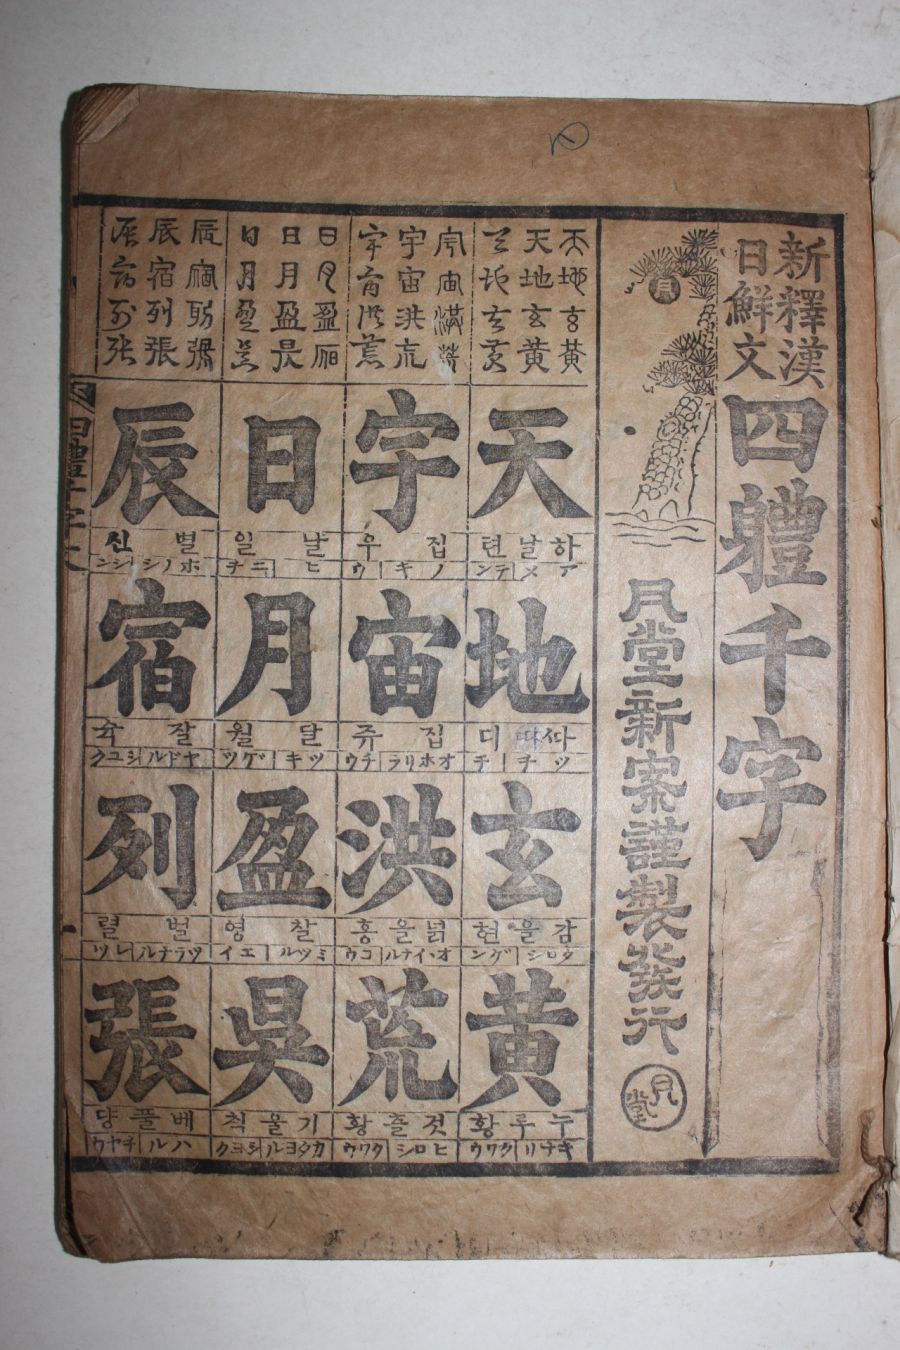 新釋漢
日鮮文
四軆千字
月堂新案謹製發行
月堂
天地玄黃
天地玄黃
天地玄黃
天
하날 텬
アメ テン
地
ᄯᅡ 디
ツチ チ
玄
감을 현
クロシ ゲン
黃
누루 황
キナリ クワウ
宇宙洪荒
宇宙洪荒
宇宙洪荒
宇
집 우
ノキ ウ
宙
집 쥬
オホソラ チウ
洪
넓을 홍
オホイナル コウ
荒
것츨 황
ヒロシ クワウ
日月盈昃
日月盈昃
日月盈昃
日
날 일
ヒ ニチ
月
달 월
ツキ ゲツ
盈
찰 영
ミツル エイ
昃
기울 칙
カタヨル シヨク
辰宿列張
辰宿列張
辰宿列張
辰
별 신
ホシノ シン
宿
잘 슉
ヤドル シユク
列
벌 렬
ツラナル レツ
張
베풀 댱
ハル チヤウ
四體千字